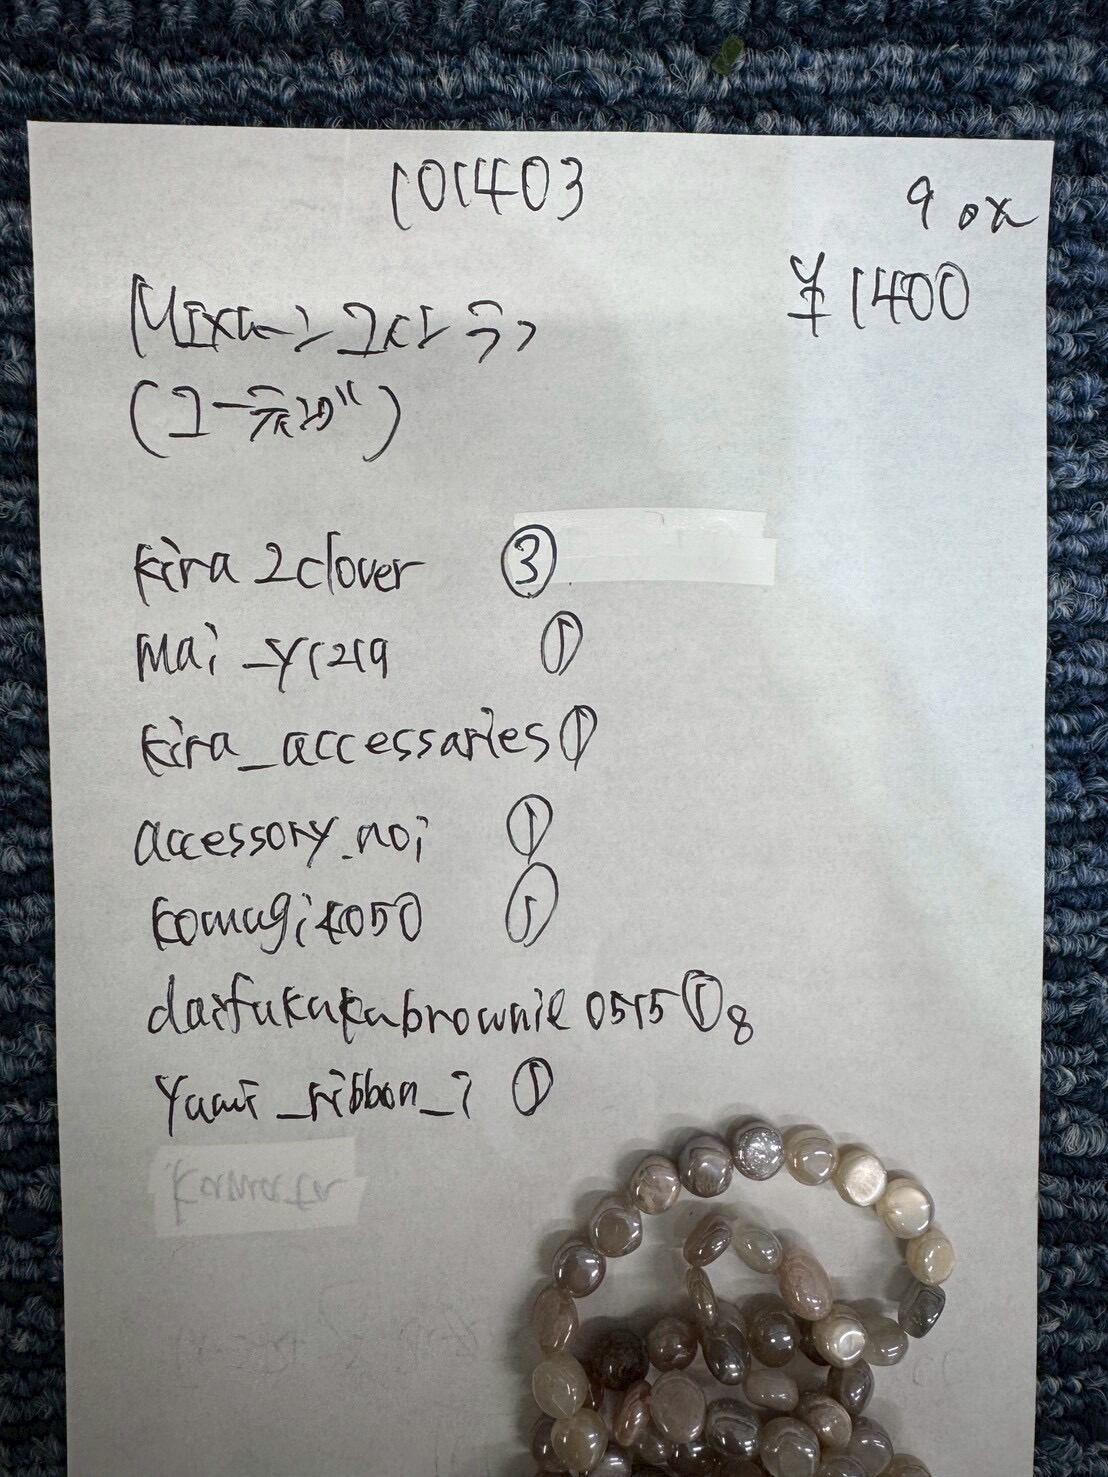 101403
9 ox
¥1400
Mixムーンコインラフ
(コー元スグ)
kira2clover ③
mai_y1219 ①
kira_accessaries①
accessory.noi ①
komugi4050 ①
daifukukubrownie0515①8
yumi_ribbon_i ①